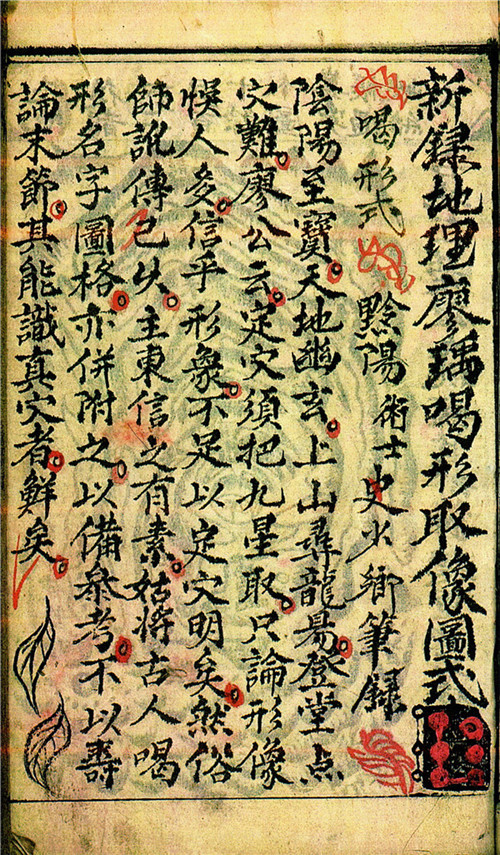 新録地理廖瑀喝形取像圖式
喝形式 黔陽術士史火鄉筆録
陰陽至寶天地幽玄上山尋龍易登堂点
穴難廖公云定穴須把九星取只論形像
悞人多信乎形象不足以定穴明矣然俗
師訛傳已久主東信之有素姑将古人喝
形名字圖格亦併附之以備叅考不以壽
論末節其能識真穴者鮮矣